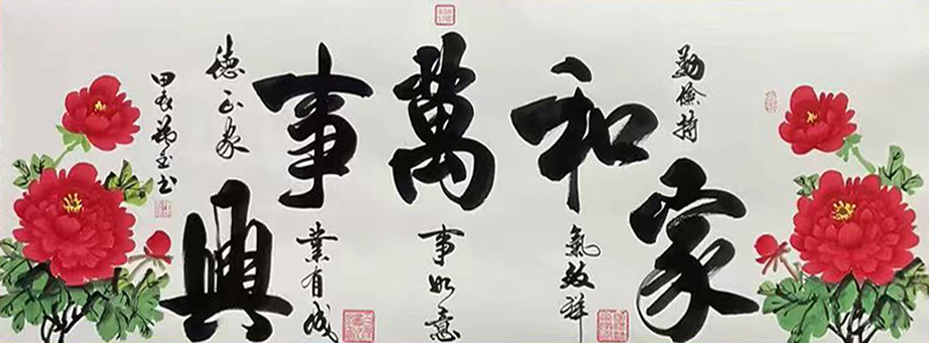 勤儉持
家
和
氣致祥
萬
事如意
事
業有成
德正家
興
甲辰 玉书